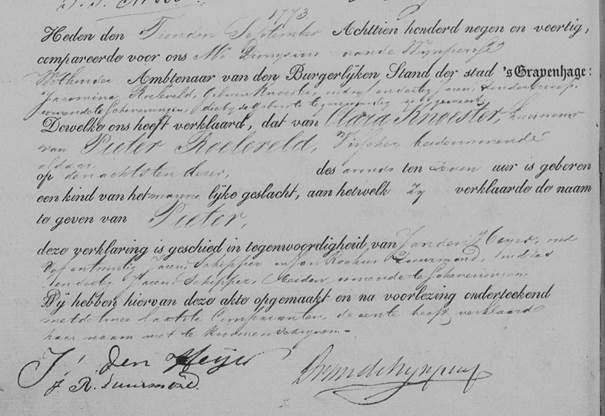 1773
Heden den Tienden September Achttien honderd negen en veertig,
compareerde voor ons Mr Dionysius van de Wynpersse
Wethouder Ambtenaar van den Burgerlijken Stand der stad 's Gravenhage:
Jacomina Roeleveld,
wonende te Scheveningen,
Dewelke ons heeft verklaard, dat van Clara Knoester, huisvrouw
van Pieter Roeleveld, Visscher beiden wonende
aldaar
op den achtsten dezer, des avonds ten zeven uur is geboren
een kind van het mannelijke geslacht, aan hetwelk zy verklaarde de naam
te geven van Pieter,
deze verklaring is geschied in tegenwoordigheid van Jan den Heyer, oud
Vijfentwintig Jaren Schipper en Jan Rookus
en dertig Jaren Schipper, beiden wonende te Scheveningen
Wij hebben hiervan deze akte opgemaakt en na voorlezing onderteekend
met de twee laatste Comparanten, de eerste heeft verklaard
haar naam niet te kunnen schrijven.
J. den Heijer
J. R.